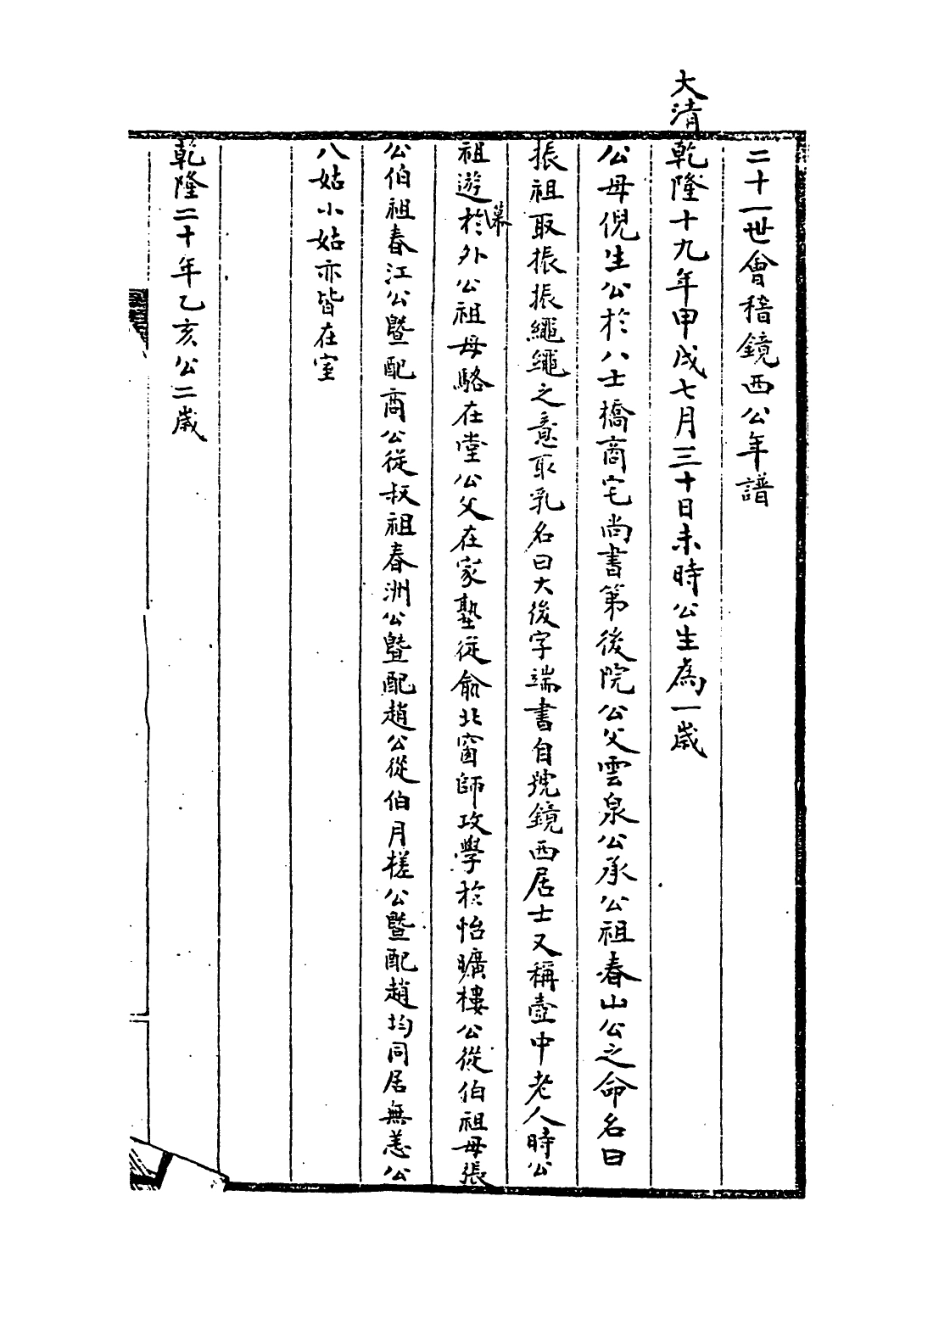 二十一世會稽鏡西公年譜
大清乾隆十九年甲戌七月三十日未時公生為一歲
公母倪生公於八士橋商宅尚書第後院公父雲泉公承公祖春山公之命名曰
振祖取振振繩繩之意取乳名曰大後字端書自號鏡西居士又稱壺中老人時公
祖遊幕於外公祖母駱在堂公父在家塾從俞北窗師攻學於怡曠樓公從伯祖母張
公伯祖春江公曁配商公從叔祖春洲公曁配趙公從伯月槎公曁配趙均同居無恙公
八姑小姑亦皆在室
乾隆二十年乙亥公二歲